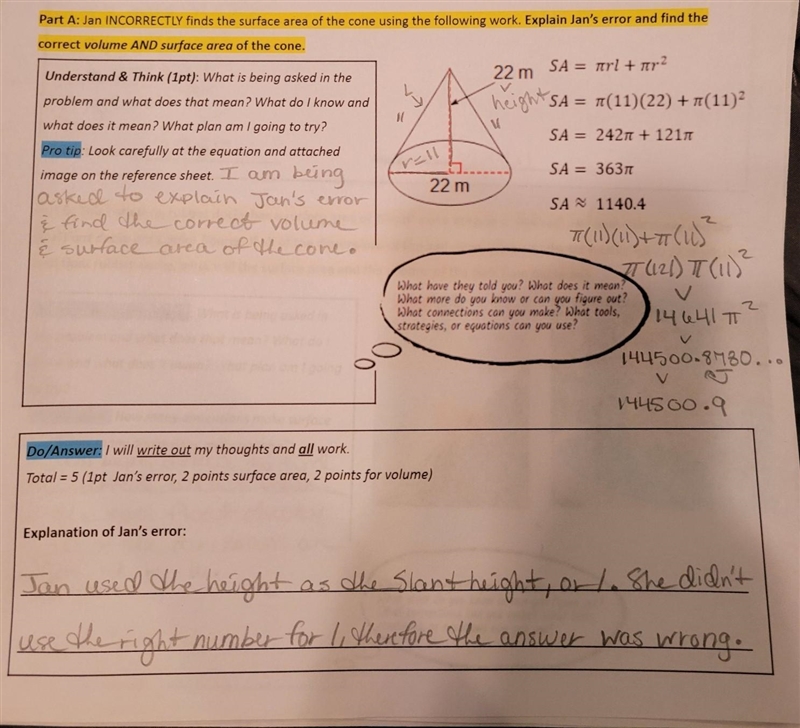 Part A: Jan INCORRECTLY finds the surface area of the cone using the following work. Explain Jan's error and find the
correct volume AND surface area of the cone.
Understand & Think (1pt): What is being asked in the
problem and what does that mean? What do I know and
what does it mean? What plan am I going to try?
Pro tip: Look carefully at the equation and attached
image on the reference sheet. I am being
asked to explain Jan's error
& find the correct volume
& surface area of the cone.
L
22 m
height
11
11
r=11
22 m
SA = πrl + πr²
SA = π(11)(22) + π(11)²
SA = 242π + 121π
SA = 363π
SA ≈ 1140.4
π(11)(11)+π(11)²
π(121)π(11)²
14641π²
144500.8780...
144500.9
What have they told you? What does it mean?
What more do you know or can you figure out?
What connections can you make? What tools,
strategies, or equations can you use?
Do/Answer: I will write out my thoughts and all work.
Total = 5 (1pt Jan's error, 2 points surface area, 2 points for volume)
Explanation of Jan's error:
Jan used the height as the slant height, or l. She didn't
use the right number for l, therefore the answer was wrong.